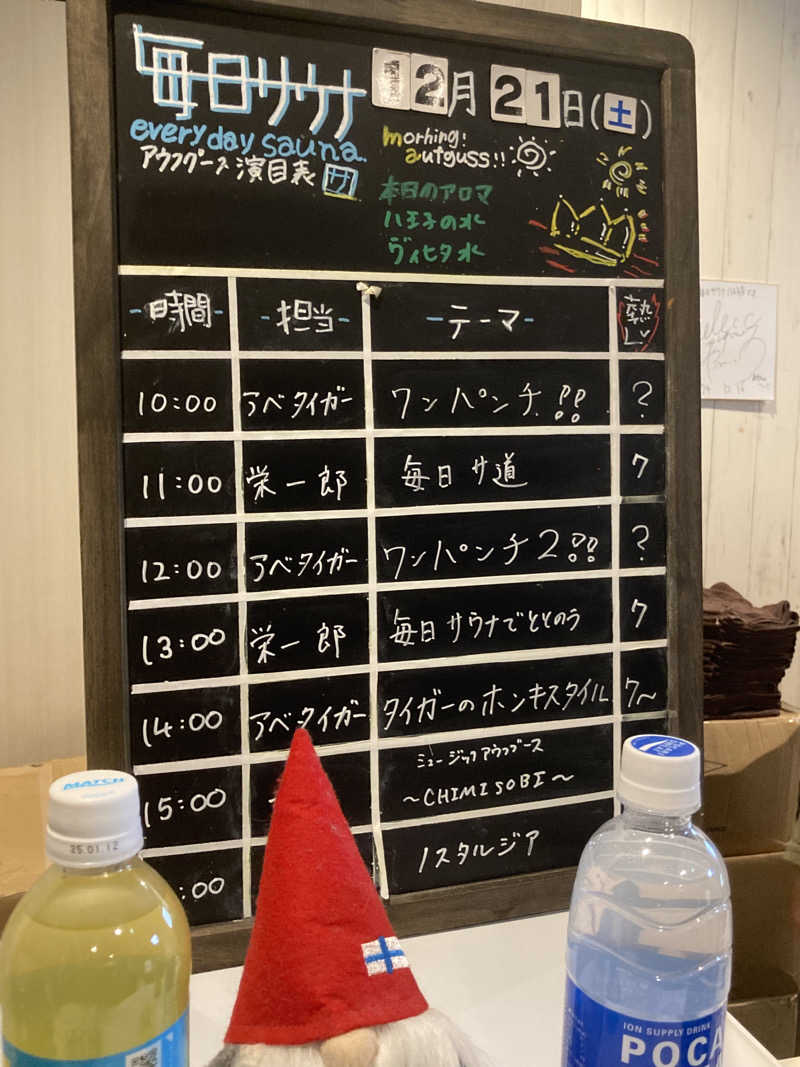 毎日サウナ 12月21日(土)
everyday sauna.
アウフグース演目表 サ
morning!
autguss!!
本日のアロマ
八王子の水
ヴィヒタ水
時間 担当 テーマ 熱レベ
10:00 アベタイガー ワンパンチ!! ?
11:00 栄一郎 毎日サ道 7
12:00 アベタイガー ワンパンチ2!! ?
13:00 栄一郎 毎日サウナでととのう 7
14:00 アベタイガー タイガーのホンキスタイル 7~
15:00 ミュージックアウフグース
~CHIMISOBI~
:00 ノスタルジア
MATCH
25.01.12
ION SUPPLY DRINK
POCA